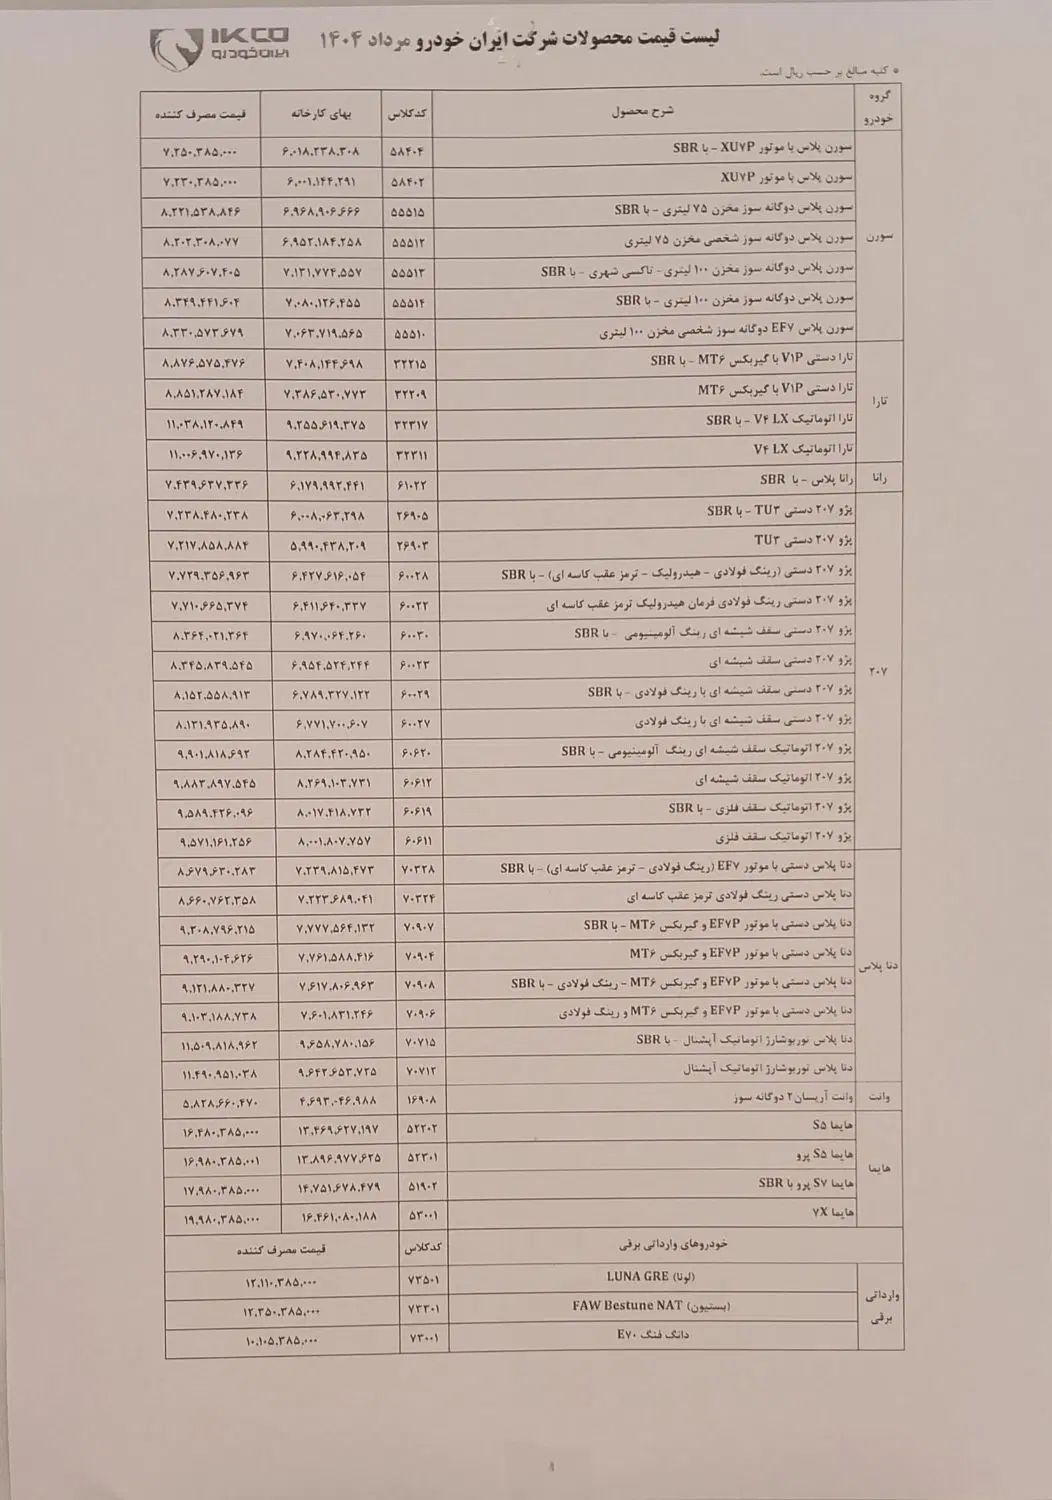 لیست قیمت محصولات شرکت ایران خودرو مرداد ۱۴۰۴
IKCO
ایران‌خودرو
* کلیه مبالغ بر حسب ریال است.
گروه خودرو | شرح محصول | کدکلاس | بهای کارخانه | قیمت مصرف کننده
سورن
سورن پلاس با موتور XU۷P - با SBR | ۵۸۴۰۴ | ۶,۰۱۸,۲۳۸,۳۰۸ | ۷,۲۵۰,۳۸۵,۰۰۰
سورن پلاس با موتور XU۷P | ۵۸۴۰۲ | ۶,۰۰۱,۱۴۴,۲۹۱ | ۷,۲۳۰,۳۸۵,۰۰۰
سورن پلاس دوگانه سوز مخزن ۷۵ لیتری - با SBR | ۵۵۵۱۵ | ۶,۹۶۸,۹۰۶,۶۶۶ | ۸,۲۲۱,۵۳۸,۸۴۶
سورن پلاس دوگانه سوز شخصی مخزن ۷۵ لیتری | ۵۵۵۱۲ | ۶,۹۵۲,۱۸۴,۲۵۸ | ۸,۲۰۲,۳۰۸,۰۷۷
سورن پلاس دوگانه سوز مخزن ۱۰۰ لیتری - تاکسی شهری - با SBR | ۵۵۵۱۳ | ۷,۱۳۱,۷۷۴,۵۵۷ | ۸,۲۸۷,۶۰۷,۴۰۵
سورن پلاس دوگانه سوز مخزن ۱۰۰ لیتری - با SBR | ۵۵۵۱۴ | ۷,۰۸۰,۱۲۶,۴۵۵ | ۸,۳۴۹,۴۴۱,۶۰۴
سورن پلاس EF۷ دوگانه سوز شخصی مخزن ۱۰۰ لیتری | ۵۵۵۱۰ | ۷,۰۶۳,۷۱۹,۵۶۵ | ۸,۳۳۰,۵۷۳,۶۷۹
تارا
تارا دستی V۱P با گیربکس MT۶ - با SBR | ۳۲۲۱۵ | ۷,۴۰۸,۱۴۴,۶۹۸ | ۸,۸۷۶,۵۷۵,۴۷۶
تارا دستی V۱P با گیربکس MT۶ | ۳۲۲۰۹ | ۷,۳۸۶,۵۳۰,۷۷۳ | ۸,۸۵۱,۲۸۷,۱۸۴
تارا اتوماتیک V۴ LX - با SBR | ۳۲۳۱۷ | ۹,۲۵۵,۶۱۹,۳۷۵ | ۱۱,۰۳۸,۱۲۰,۸۴۹
تارا اتوماتیک V۴ LX | ۳۲۳۱۱ | ۹,۲۲۸,۹۹۴,۸۳۵ | ۱۱,۰۰۶,۹۷۰,۱۳۶
رانا
رانا پلاس - با SBR | ۶۱۰۲۲ | ۶,۱۷۹,۹۹۲,۴۴۱ | ۷,۴۳۹,۶۳۷,۳۳۶
۲۰۷
پژو ۲۰۷ دستی TU۳ - با SBR | ۲۶۹۰۵ | ۶,۰۰۸,۰۶۳,۲۹۸ | ۷,۲۳۸,۴۸۰,۲۳۸
پژو ۲۰۷ دستی TU۳ | ۲۶۹۰۳ | ۵,۹۹۰,۴۳۸,۲۰۹ | ۷,۲۱۷,۸۵۸,۸۸۴
پژو ۲۰۷ دستی (رینگ فولادی - هیدرولیک - ترمز عقب کاسه ای) - با SBR | ۶۰۰۲۸ | ۶,۴۲۷,۶۱۶,۰۵۴ | ۷,۷۲۹,۳۵۶,۹۶۳
پژو ۲۰۷ دستی رینگ فولادی فرمان هیدرولیک ترمز عقب کاسه ای | ۶۰۰۲۲ | ۶,۴۱۱,۶۴۰,۳۲۷ | ۷,۷۱۰,۶۶۵,۳۷۴
پژو ۲۰۷ دستی سقف شیشه ای رینگ آلومینیومی - با SBR | ۶۰۰۳۰ | ۶,۹۷۰,۰۶۴,۲۶۰ | ۸,۳۶۴,۰۲۱,۳۶۴
پژو ۲۰۷ دستی سقف شیشه ای | ۶۰۰۲۳ | ۶,۹۵۴,۵۲۴,۲۴۴ | ۸,۳۴۵,۸۳۹,۵۴۵
پژو ۲۰۷ دستی سقف شیشه ای با رینگ فولادی - با SBR | ۶۰۰۲۹ | ۶,۷۸۹,۳۲۷,۱۲۲ | ۸,۱۵۲,۵۵۸,۹۱۳
پژو ۲۰۷ دستی سقف شیشه ای با رینگ فولادی | ۶۰۰۲۷ | ۶,۷۷۱,۷۰۰,۶۰۷ | ۸,۱۳۱,۹۳۵,۸۹۰
پژو ۲۰۷ اتوماتیک سقف شیشه ای رینگ آلومینیومی - با SBR | ۶۰۶۲۰ | ۸,۲۸۴,۴۲۰,۹۵۰ | ۹,۹۰۱,۸۱۸,۶۹۲
پژو ۲۰۷ اتوماتیک سقف شیشه ای | ۶۰۶۱۲ | ۸,۲۶۹,۱۰۳,۷۳۱ | ۹,۸۸۳,۸۹۷,۵۴۵
پژو ۲۰۷ اتوماتیک سقف فلزی - با SBR | ۶۰۶۱۹ | ۸,۰۱۷,۴۱۸,۷۳۲ | ۹,۵۸۹,۴۲۶,۰۹۶
پژو ۲۰۷ اتوماتیک سقف فلزی | ۶۰۶۱۱ | ۸,۰۰۱,۸۰۷,۷۵۷ | ۹,۵۷۱,۱۶۱,۲۵۶
دنا پلاس
دنا پلاس دستی با موتور EF۷ (رینگ فولادی - ترمز عقب کاسه ای) - با SBR | ۷۰۳۲۸ | ۷,۲۳۹,۸۱۵,۴۷۳ | ۸,۶۷۹,۶۳۰,۲۸۳
دنا پلاس دستی رینگ فولادی ترمز عقب کاسه ای | ۷۰۳۲۴ | ۷,۲۲۳,۶۸۹,۰۴۱ | ۸,۶۶۰,۷۶۲,۳۵۸
دنا پلاس دستی با موتور EF۷P و گیربکس MT۶ - با SBR | ۷۰۹۰۷ | ۷,۷۷۷,۵۶۴,۱۳۲ | ۹,۳۰۸,۷۹۶,۲۱۵
دنا پلاس دستی با موتور EF۷P و گیربکس MT۶ | ۷۰۹۰۴ | ۷,۷۶۱,۵۸۸,۴۱۶ | ۹,۲۹۰,۱۰۴,۶۲۶
دنا پلاس دستی با موتور EF۷P و گیربکس MT۶ - رینگ فولادی - با SBR | ۷۰۹۰۸ | ۷,۶۱۷,۸۰۶,۹۶۳ | ۹,۱۲۱,۸۸۰,۳۲۷
دنا پلاس دستی با موتور EF۷P و گیربکس MT۶ و رینگ فولادی | ۷۰۹۰۶ | ۷,۶۰۱,۸۳۱,۲۴۶ | ۹,۱۰۳,۱۸۸,۷۳۸
دنا پلاس توربوشارژ اتوماتیک آپشنال - با SBR | ۷۰۷۱۵ | ۹,۶۵۸,۷۸۰,۱۵۶ | ۱۱,۵۰۹,۸۱۸,۹۶۲
دنا پلاس توربوشارژ اتوماتیک آپشنال | ۷۰۷۱۲ | ۹,۶۴۲,۶۵۳,۷۲۵ | ۱۱,۴۹۰,۹۵۱,۰۳۸
وانت
وانت آریسان۲ دوگانه سوز | ۱۶۹۰۸ | ۴,۶۹۳,۰۴۶,۹۸۸ | ۵,۸۲۸,۶۶۰,۴۷۰
هایما
هایما S۵ | ۵۲۲۰۲ | ۱۳,۴۶۹,۶۲۷,۱۹۷ | ۱۶,۴۸۰,۳۸۵,۰۰۰
هایما S۵ پرو | ۵۲۳۰۱ | ۱۳,۸۹۶,۹۷۷,۶۲۵ | ۱۶,۹۸۰,۳۸۵,۰۰۱
هایما S۷ پرو با SBR | ۵۱۹۰۲ | ۱۴,۷۵۱,۶۷۸,۴۷۹ | ۱۷,۹۸۰,۳۸۵,۰۰۰
هایما ۷X | ۵۳۰۰۱ | ۱۶,۴۶۱,۰۸۰,۱۸۸ | ۱۹,۹۸۰,۳۸۵,۰۰۰
خودروهای وارداتی برقی | کدکلاس | قیمت مصرف کننده
وارداتی برقی
(لونا) LUNA GRE | ۷۳۵۰۱ | ۱۲,۱۱۰,۳۸۵,۰۰۰
(بستیون) FAW Bestune NAT | ۷۳۳۰۱ | ۱۲,۳۵۰,۳۸۵,۰۰۰
دانگ فنگ E۷۰ | ۷۳۰۰۱ | ۱۰,۱۰۵,۳۸۵,۰۰۰